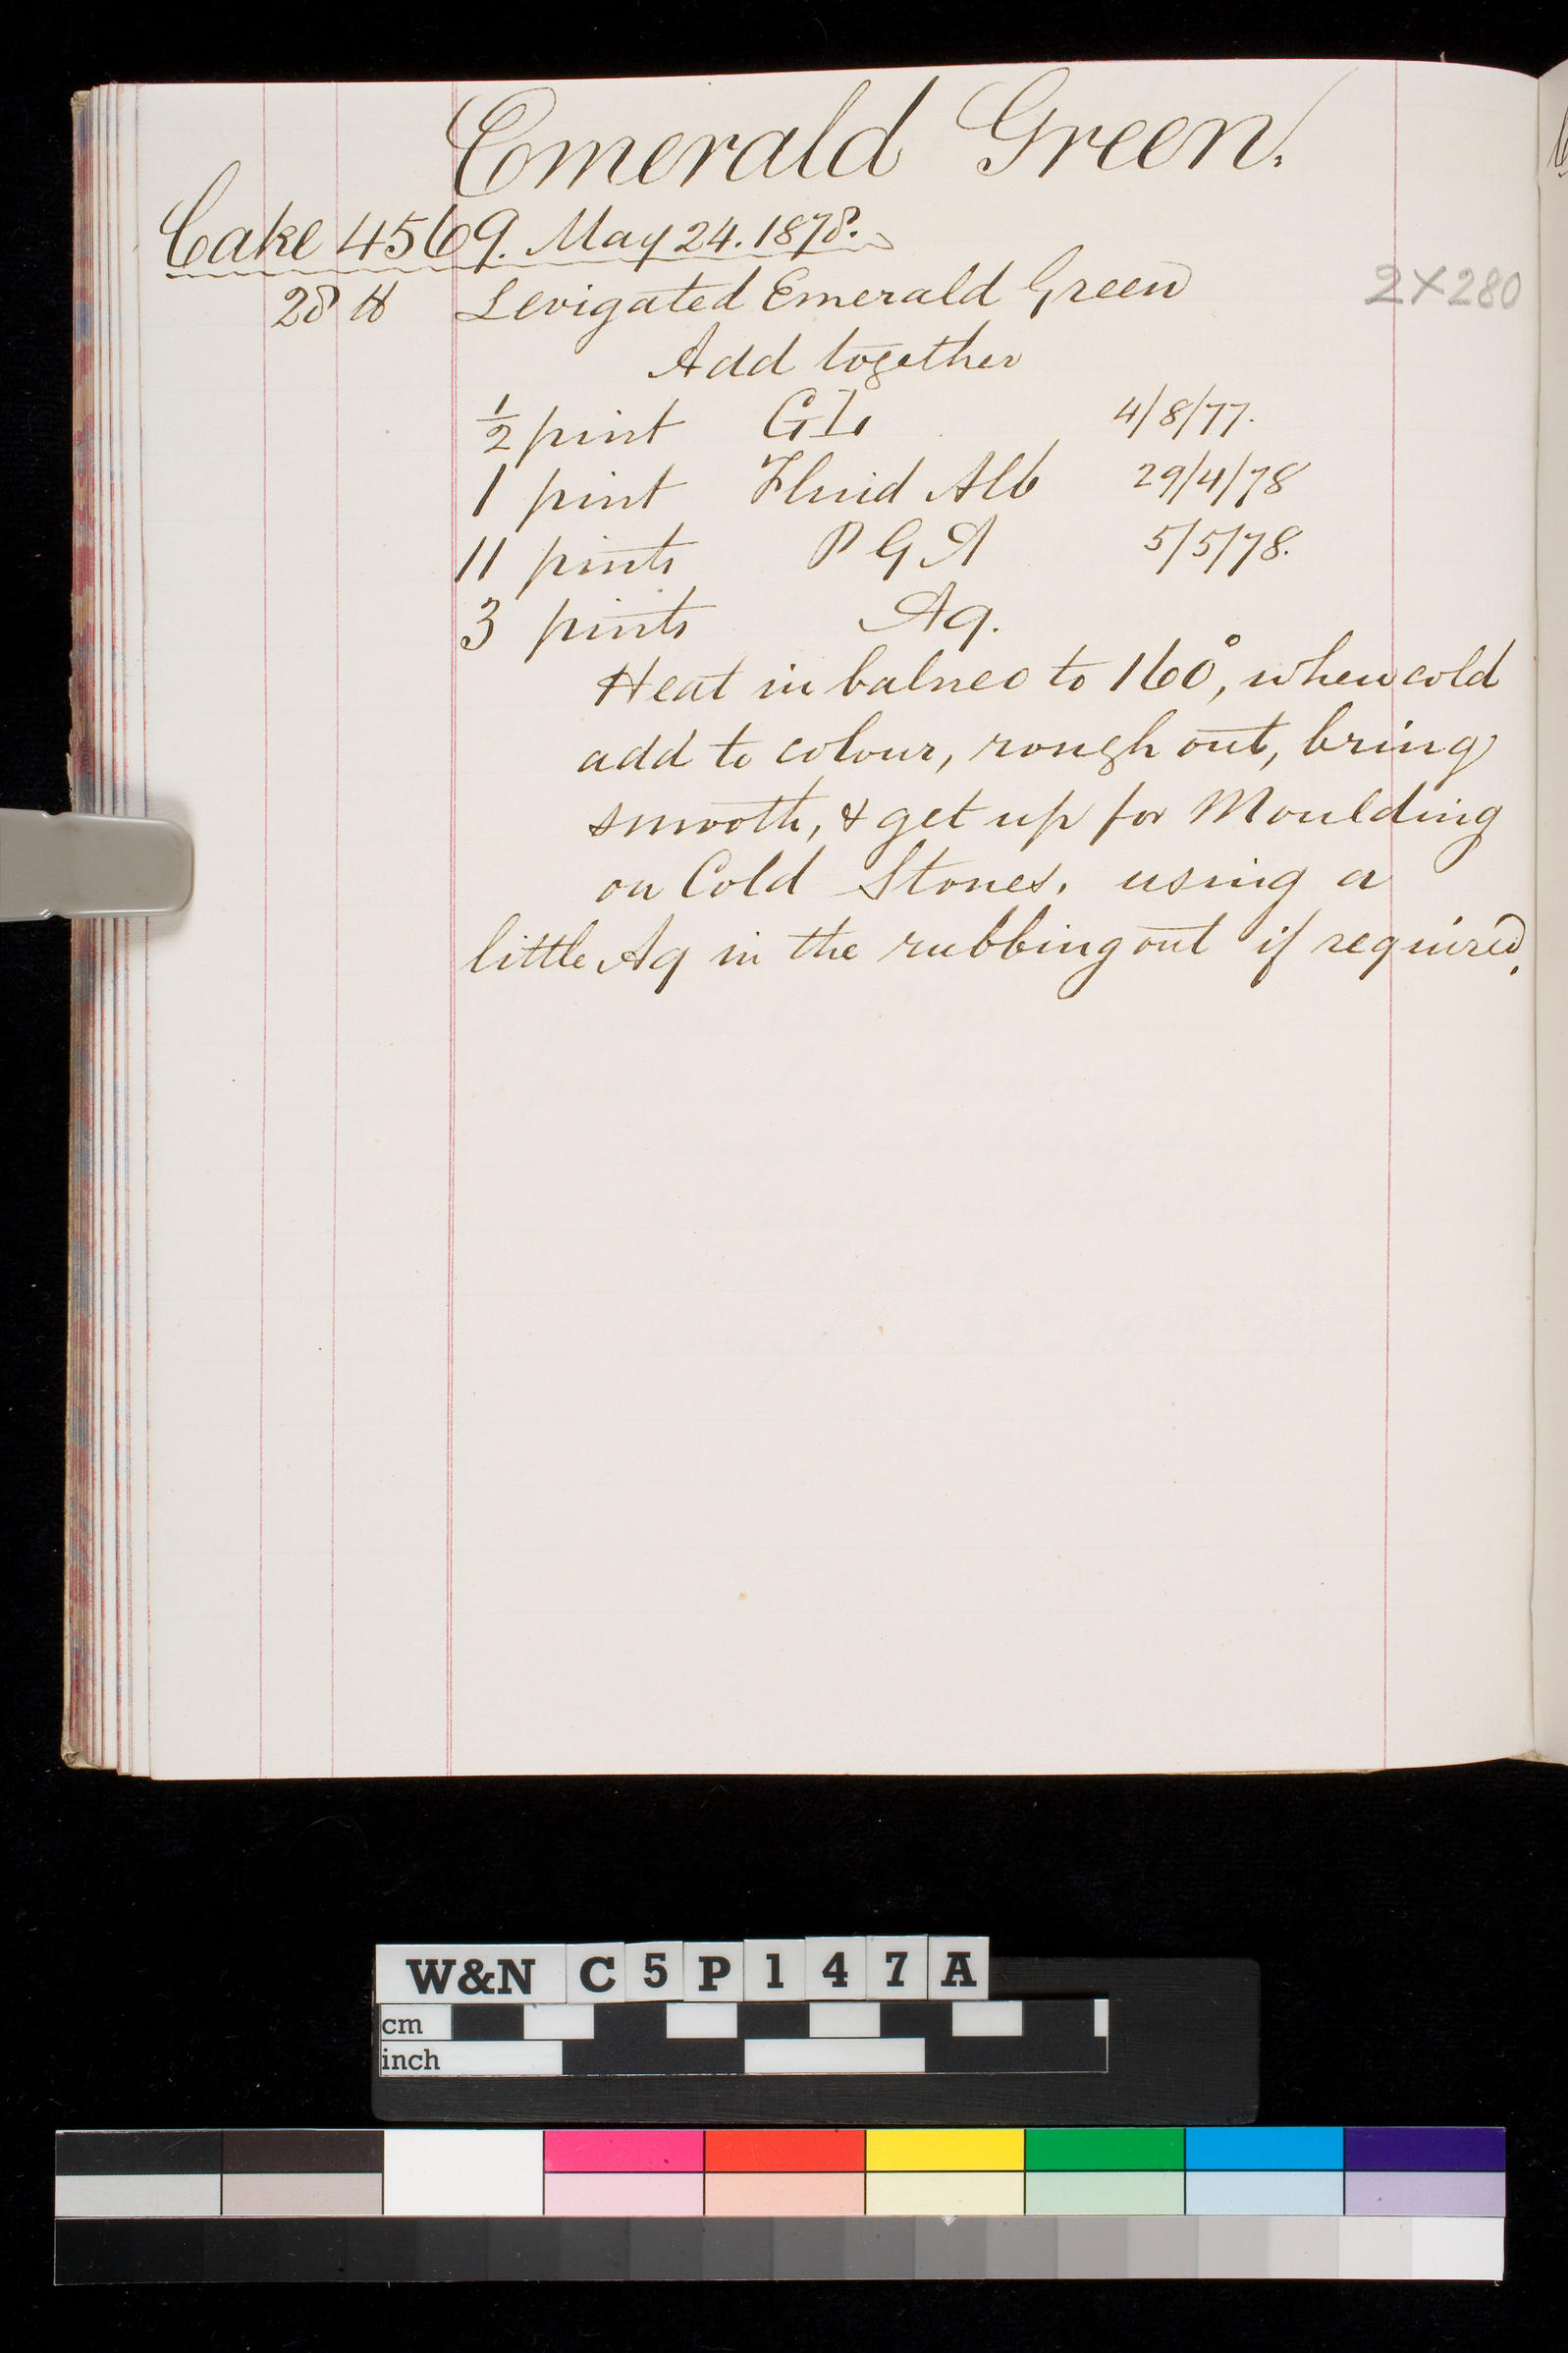 Emerald Green.
Cake 4569. May 24. 1878.
28 ℔ Levigated Emerald Green 2×280
Add together
½ pint GL 4/8/77.
1 pint Fluid Alb 29/4/78
11 pints P G A 5/5/78.
3 pints Aq.
Heat in balneo to 160°, when cold
add to colour, rough out, bring
smooth, & get up for Moulding
on Cold Stones, using a
little Aq in the rubbing out if required.
W&N C5P147A
cm
inch